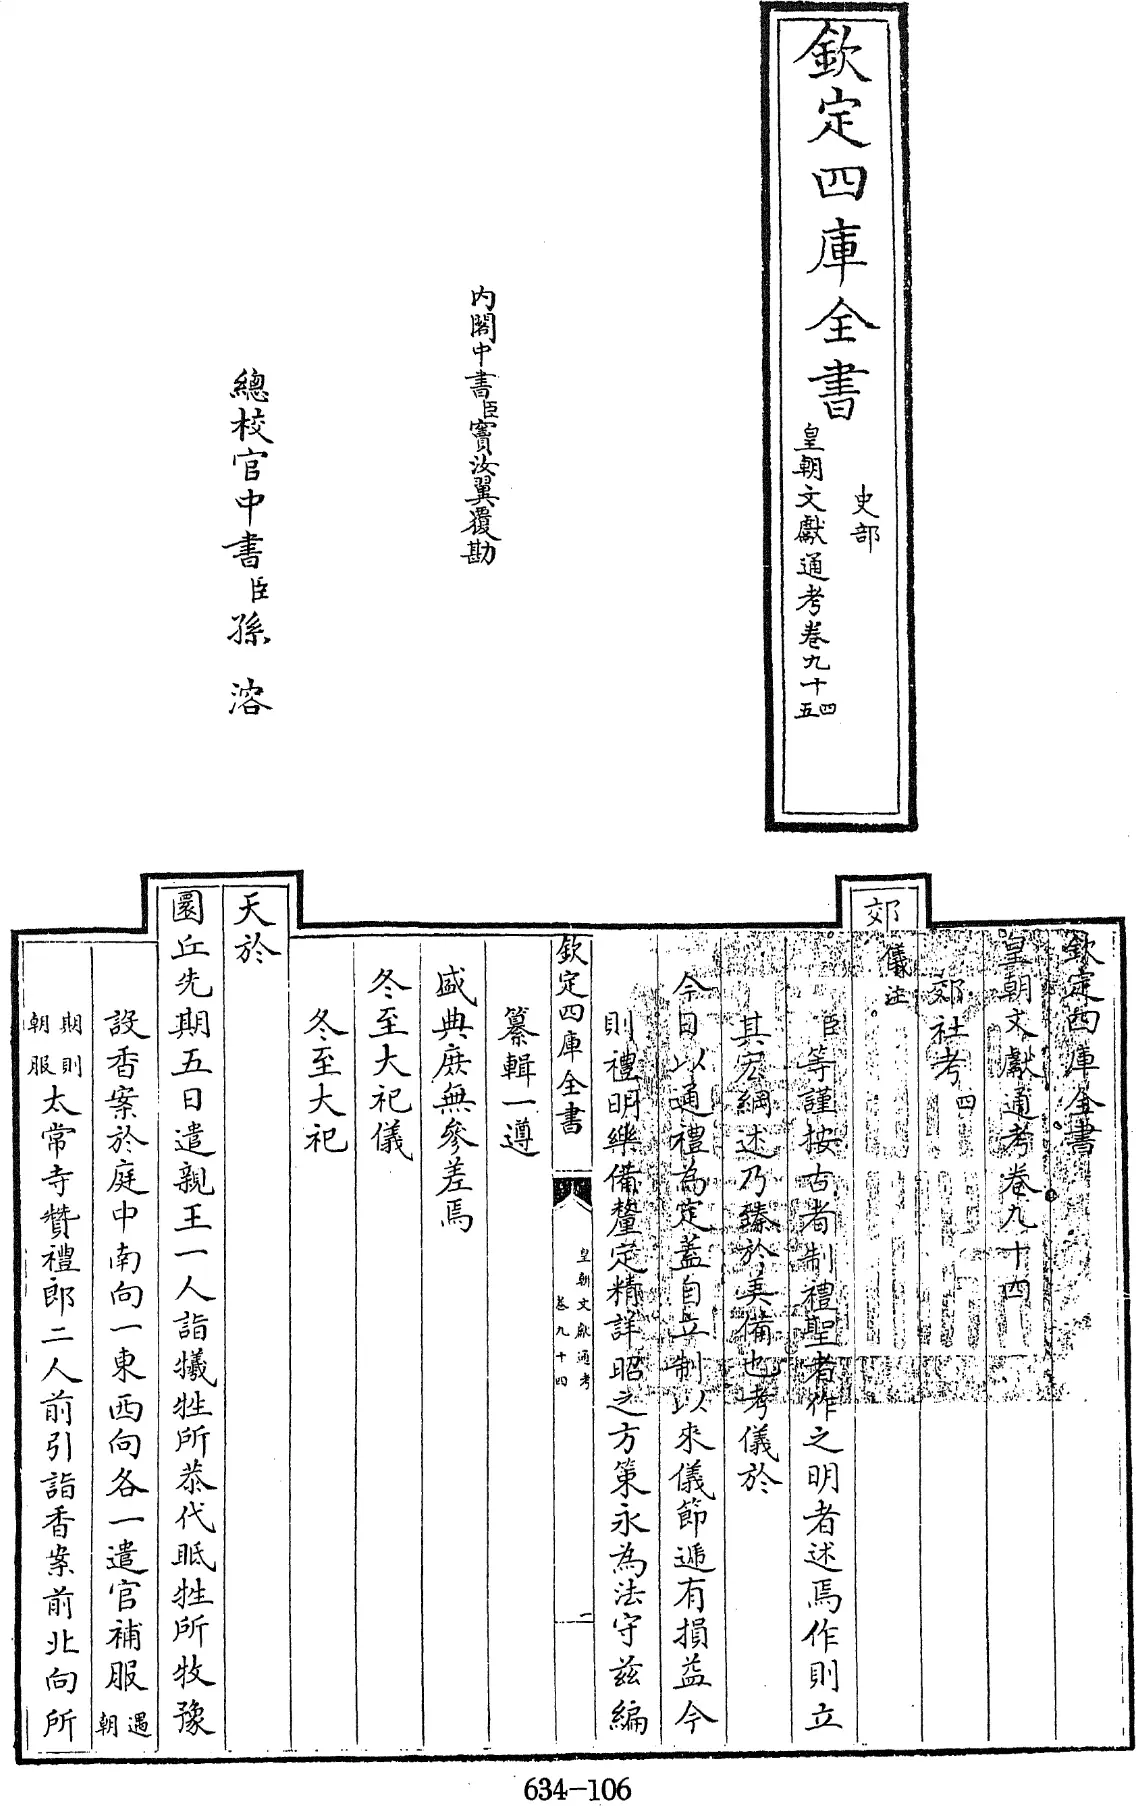 欽定四庫全書
史部
皇朝文獻通考卷九十四五
內閣中書臣竇汝翼覆勘
總校官中書臣孫溶
欽定四庫全書
皇朝文獻通考卷九十四
郊社考四
郊儀注
臣等謹按古者制禮聖者作之明者述焉作則立
其宏綱述乃臻於美備也考儀於
今日以通禮為定蓋自立制以來儀節遞有損益今
則禮明樂備釐定精詳昭之方策永為法守茲編
欽定四庫全書
皇朝文獻通考
卷九十四
二
纂輯一遵
盛典庶無參差焉
冬至大祀儀
冬至大祀
天於
圜丘先期五日遣親王一人詣犧牲所恭代眡牲所牧豫
設香案於庭中南向一東西向各一遣官補服遇朝
期則朝服太常寺贊禮郎二人前引詣香案前北向所
634-106